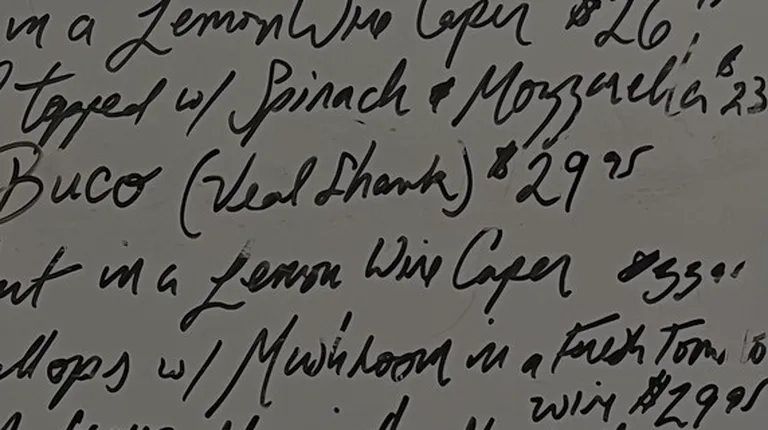 in a Lemon Wine Caper $26
topped w/ Spinach & Mozzarella $23
Buco (Veal Shank) $29 95
in a Lemon Wine Caper $33
w/ Mushroom in a Fresh
wine $29 95